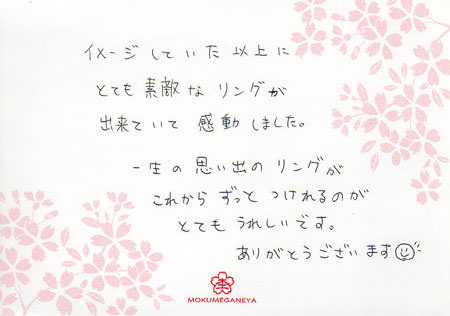 イメージしていた以上に
とても素敵なリングが
出来ていて感動しました。
一生の思い出のリングが
これからずっとつけれるのが
とてもうれしいです。
ありがとうございます
MOKUMEGANEYA